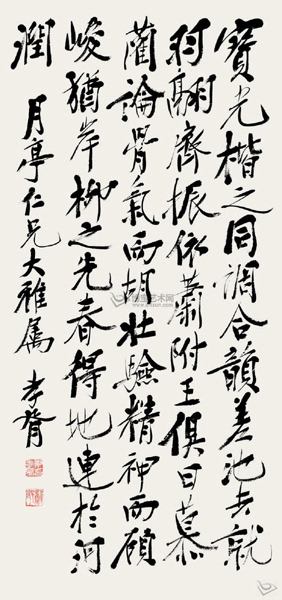 寶光楷之同調合韻差池去就
羽翮齊振依蕭附王俱曰慕
藺論骨氣而胡壯驗精神而顧
峻猶岸柳之先春得地連於河
潤
月亭仁兄大雅屬 孝胥